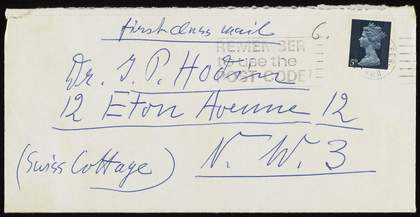 first class mail 6.
REMEMBER
to use the
POST CODE
5D
Dr. J. P. Hodin
12 Eton Avenue 12
(Swiss Cottage) N. W. 3